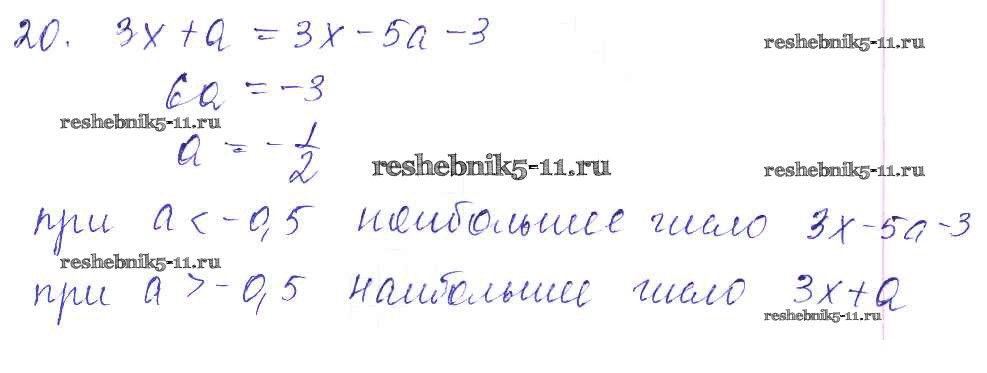 20. 3x + a = 3x - 5a - 3
reshebnik5-11.ru
6a = -3
reshebnik5-11.ru
a = -1/2
reshebnik5-11.ru reshebnik5-11.ru
при a < -0,5 наибольшее число 3x - 5a - 3
reshebnik5-11.ru
при a > -0,5 наибольшее число 3x + a
reshebnik5-11.ru